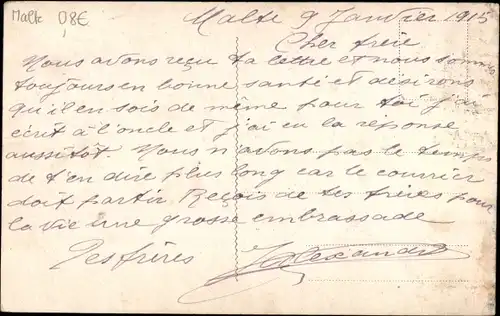 Malte 0,8€
Malte 9 Janvier 1915
Cher frère
Nous avons reçu ta lettre et nous sommes
toujours en bonne santé et désirons
qu'il en sois de même pour toi j'ai
écrit à l'oncle et j'ai eu la réponse
aussitôt. Nous n'avons pas le temps
de t'en dire plus long car le courrier
doit partir. Reçois de tes frères pour
la vie une grosse embrassade
Tes frères Alexandre